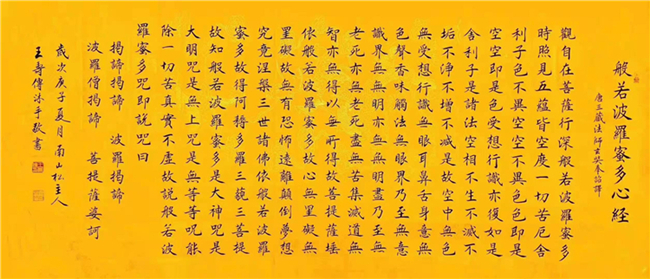 般若波羅蜜多心經
唐三藏法師玄奘奉詔譯
觀自在菩薩行深般若波羅蜜多
時照見五蘊皆空度一切苦厄舍
利子色不異空空不異色色即是
空空即是色受想行識亦復如是
舍利子是諸法空相不生不滅不
垢不淨不增不減是故空中無色
無受想行識無眼耳鼻舌身意無
色聲香味觸法無眼界乃至無意
識界無無明亦無無明盡乃至無
老死亦無老死盡無苦集滅道無
智亦無得以無所得故菩提薩埵
依般若波羅蜜多故心無罣礙無
罣礙故無有恐怖遠離顛倒夢想
究竟涅槃三世諸佛依般若波羅
蜜多故得阿耨多羅三藐三菩提
故知般若波羅蜜多是大神咒是
大明咒是無上咒是無等等咒能
除一切苦真實不虛故說般若波
羅蜜多咒即說咒曰
揭諦揭諦 波羅揭諦
波羅僧揭諦 菩提薩婆訶
歲次庚子夏月南山松主人
王壽傳沐手敬書